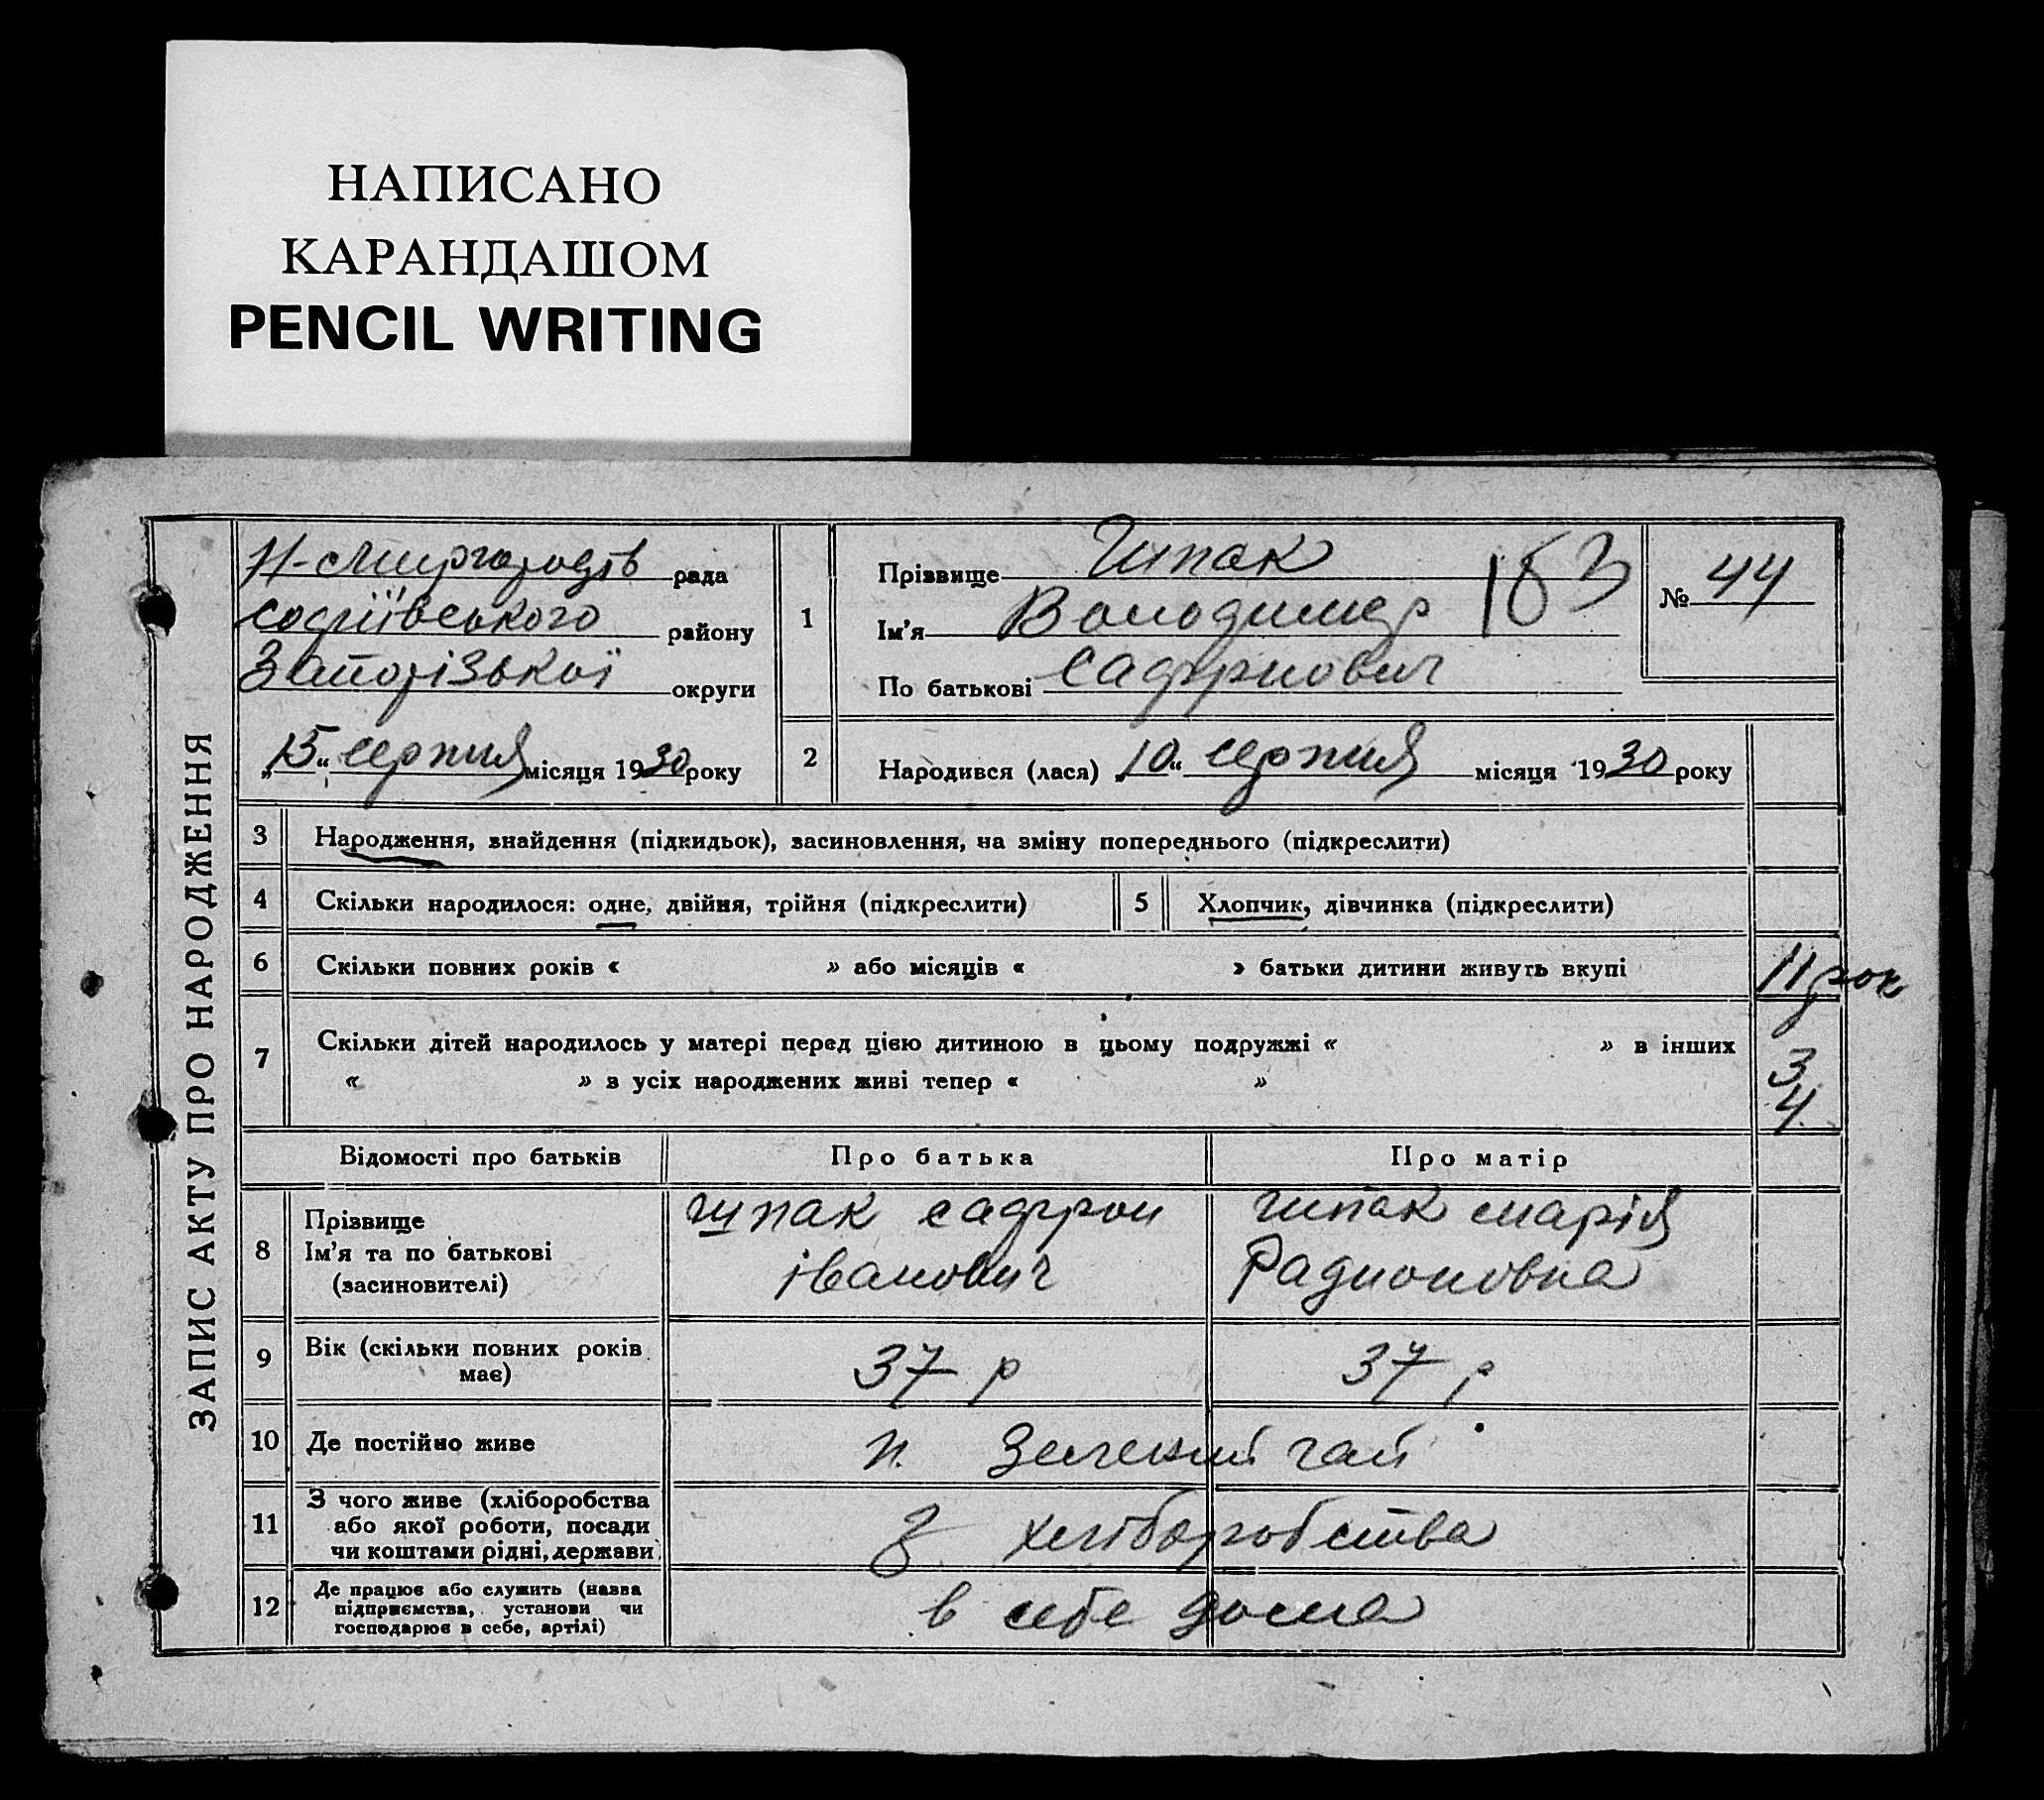 НАПИСАНО
КАРАНДАШОМ
PENCIL WRITING
ЗАПИС АКТУ ПРО НАРОДЖЕННЯ
Н-Миргородів рада
Софіївського району
Запорізької округи
„15“ серпня місяця 1930 року
1
Прізвище Шпак
Ім'я Володимер
183
По батькові Сафрнович
№ 44
2
Народився (лася) „10“ серпня місяця 1930 року
3 Народження, знайдення (підкидьок), засиновлення, на зміну попереднього (підкреслити)
4 Скільки народилося: одне, двійня, трійня (підкреслити) 5 Хлопчик, дівчинка (підкреслити)
6 Скільки повних років « » або місяців « » батьки дитини живуть вкупі 11 рок
7 Скільки дітей народилось у матері перед цією дитиною в цьому подружжі « » в інших 3
« » в усіх народжених живі тепер « » 4
Відомості про батьків Про батька Про матір
8 Прізвище
Ім'я та по батькові
(засиновителі)
шпак сафрон
іванович
шпак марія
Радионовна
9 Вік (скільки повних років
має)
37 р 37 р
10 Де постійно живе
п. Зелений гай
11 З чого живе (хліборобства
або якої роботи, посади
чи коштами рідні, держави)
З хліборобства
12 Де працює або служить (назва
підприємства, установи чи
господарює в себе, артілі)
в себе дома